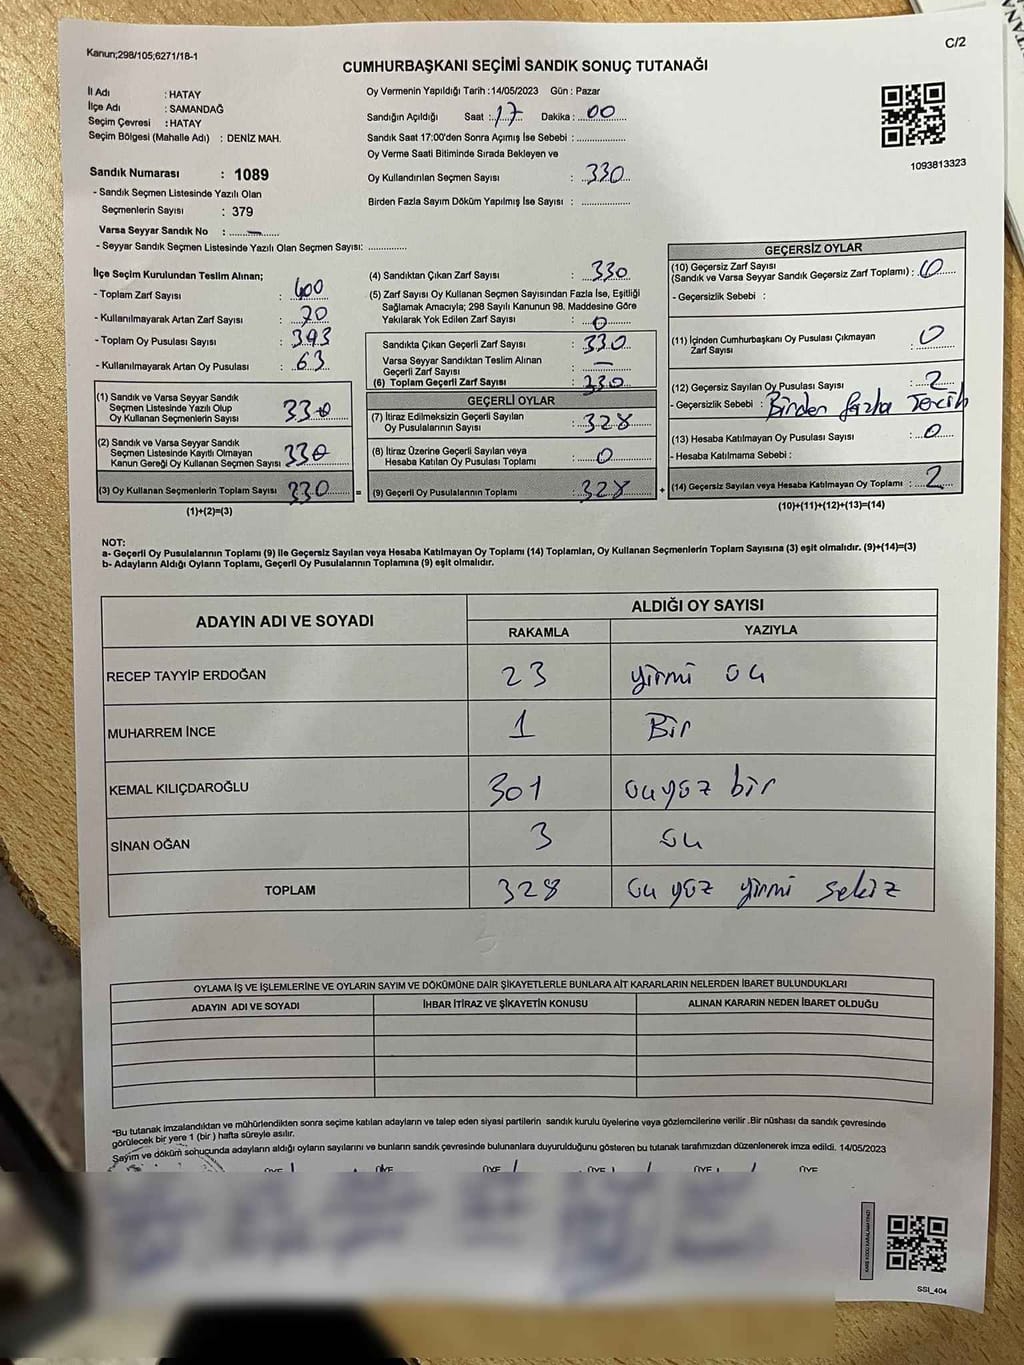 Kanun;298/105;6271/18-1
C/2
CUMHURBAŞKANI SEÇİMİ SANDIK SONUÇ TUTANAĞI
İl Adı : HATAY
İlçe Adı : SAMANDAĞ
Seçim Çevresi : HATAY
Seçim Bölgesi (Mahalle Adı) : DENİZ MAH.
Oy Vermenin Yapıldığı Tarih :14/05/2023 Gün : Pazar
Sandığın Açıldığı Saat : 17 Dakika : 00
Sandık Saat 17:00'den Sonra Açımış İse Sebebi :
Oy Verme Saati Bitiminde Sırada Bekleyen ve
Oy Kullandırılan Seçmen Sayısı : 330
Birden Fazla Sayım Döküm Yapılmış İse Sayısı :
1093813323
Sandık Numarası : 1089
- Sandık Seçmen Listesinde Yazılı Olan
Seçmenlerin Sayısı : 379
Varsa Seyyar Sandık No : —
- Seyyar Sandık Seçmen Listesinde Yazılı Olan Seçmen Sayısı:
İlçe Seçim Kurulundan Teslim Alınan;
- Toplam Zarf Sayısı : 400
- Kullanılmayarak Artan Zarf Sayısı : 70
- Toplam Oy Pusulası Sayısı : 393
- Kullanılmayarak Artan Oy Pusulası : 63
(1) Sandık ve Varsa Seyyar Sandık
Seçmen Listesinde Yazılı Olup
Oy Kullanan Seçmenlerin Sayısı 330
(2) Sandık ve Varsa Seyyar Sandık
Seçmen Listesinde Kayıtlı Olmayan
Kanun Gereği Oy Kullanan Seçmen Sayısı 330
(3) Oy Kullanan Seçmenlerin Toplam Sayısı 330
(1)+(2)=(3)
(4) Sandıktan Çıkan Zarf Sayısı : 330
(5) Zarf Sayısı Oy Kullanan Seçmen Sayısından Fazla İse, Eşitliği
Sağlamak Amacıyla; 298 Sayılı Kanunun 98. Maddesine Göre
Yakılarak Yok Edilen Zarf Sayısı : 0
Sandıkta Çıkan Geçerli Zarf Sayısı : 330
Varsa Seyyar Sandıktan Teslim Alınan
Geçerli Zarf Sayısı : —
(6) Toplam Geçerli Zarf Sayısı : 330
GEÇERLİ OYLAR
(7) İtiraz Edilmeksizin Geçerli Sayılan
Oy Pusulalarının Sayısı : 328
(8) İtiraz Üzerine Geçerli Sayılan veya
Hesaba Katılan Oy Pusulası Toplamı : 0
= (9) Geçerli Oy Pusulalarının Toplamı : 328 +
GEÇERSİZ OYLAR
(10) Geçersiz Zarf Sayısı
(Sandık ve Varsa Seyyar Sandık Geçersiz Zarf Toplamı) : 0
- Geçersizlik Sebebi :
(11) İçinden Cumhurbaşkanı Oy Pusulası Çıkmayan
Zarf Sayısı : 0
(12) Geçersiz Sayılan Oy Pusulası Sayısı : 2
- Geçersizlik Sebebi : Birden fazla Tercih
(13) Hesaba Katılmayan Oy Pusulası Sayısı : 0
- Hesaba Katılmama Sebebi :
(14) Geçersiz Sayılan veya Hesaba Katılmayan Oy Toplamı : 2
(10)+(11)+(12)+(13)=(14)
NOT:
a- Geçerli Oy Pusulalarının Toplamı (9) ile Geçersiz Sayılan veya Hesaba Katılmayan Oy Toplamı (14) Toplamları, Oy Kullanan Seçmenlerin Toplam Sayısına (3) eşit olmalıdır. (9)+(14)=(3)
b- Adayların Aldığı Oyların Toplamı, Geçerli Oy Pusulalarının Toplamına (9) eşit olmalıdır.
ADAYIN ADI VE SOYADI
ALDIĞI OY SAYISI
RAKAMLA YAZIYLA
RECEP TAYYİP ERDOĞAN 23 yirmi üç
MUHARREM İNCE 1 Bir
KEMAL KILIÇDAROĞLU 301 üçyüz bir
SİNAN OĞAN 3 üç
TOPLAM 328 üç yüz yirmi sekiz
OYLAMA İŞ VE İŞLEMLERİNE VE OYLARIN SAYIM VE DÖKÜMÜNE DAİR ŞİKAYETLERLE BUNLARA AİT KARARLARIN NELERDEN İBARET BULUNDUKLARI
ADAYIN ADI VE SOYADI İHBAR İTİRAZ VE ŞİKAYETİN KONUSU ALINAN KARARIN NEDEN İBARET OLDUĞU
*Bu tutanak imzalandıktan ve mühürlendikten sonra seçime katılan adayların ve talep eden siyasi partilerin sandık kurulu üyelerine veya gözlemcilerine verilir .Bir nüshası da sandık çevresinde
görülecek bir yere 1 (bir ) hafta süreyle asılır.
Sayım ve döküm sonucunda adayların aldığı oyların sayılarını ve bunların sandık çevresinde bulunanlara duyurulduğunu gösteren bu tutanak tarafımızdan düzenlenerek imza edildi. 14/05/2023
ÜYE ÜYE ÜYE ÜYE ÜYE ÜYE
SSI_404